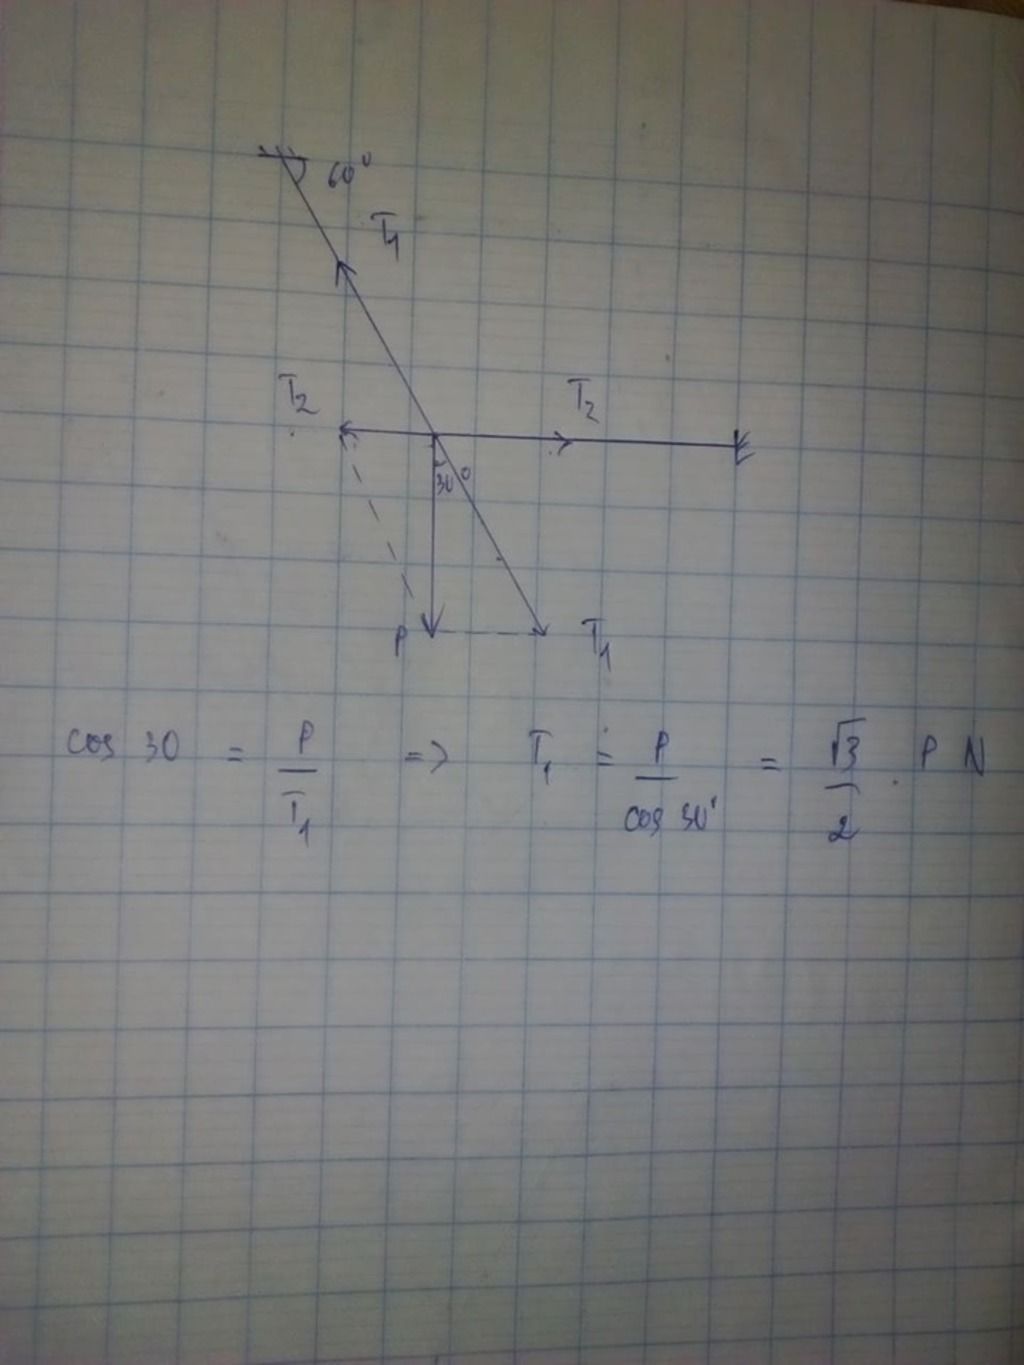 60°
T1
T2 T2
30°
P T1
cos 30 = P / T1 => T1 = P / cos 30° = √3 / 2 . P N